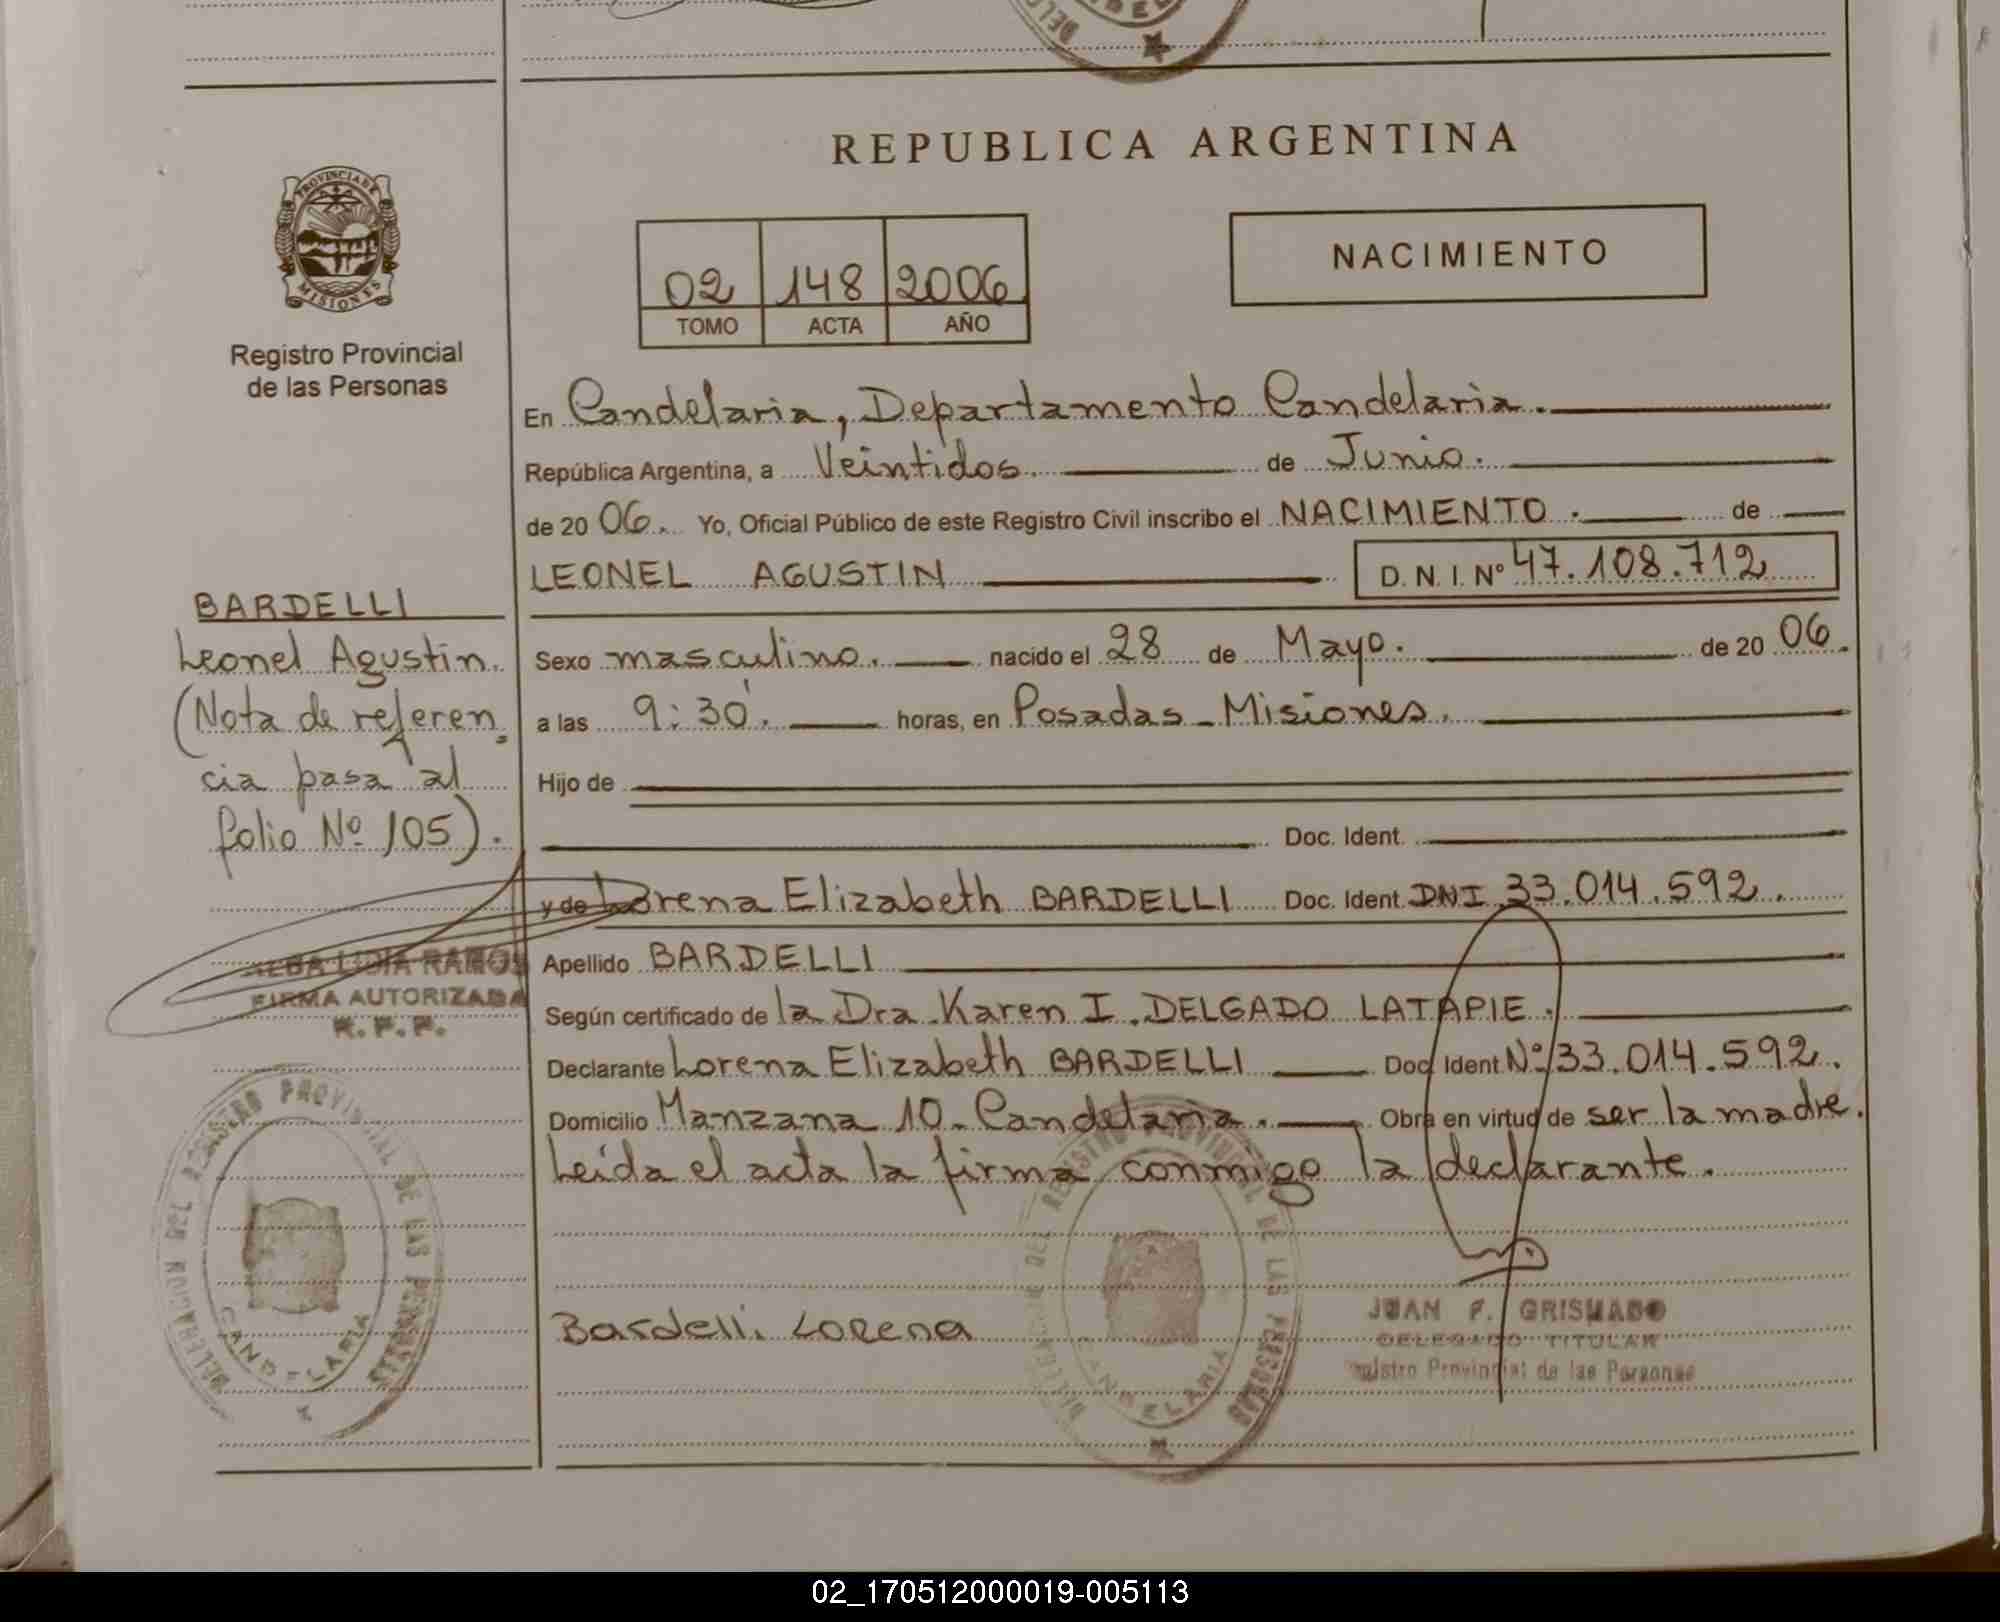 REPUBLICA ARGENTINA
PROVINCIA DE
MISIONES
Registro Provincial
de las Personas
02 148 2006
TOMO ACTA AÑO
NACIMIENTO
En Candelaria, Departamento Candelaria.
República Argentina, a Veintidos. de Junio.
de 20 06. Yo, Oficial Público de este Registro Civil inscribo el NACIMIENTO. de
LEONEL AGUSTIN D. N. I. Nº 47.108.712
BARDELLI
Leonel Agustin.
(Nota de referen
cia pasa al
folio Nº 105).
Sexo masculino. nacido el 28 de Mayo. de 20 06.
a las 9:30. horas, en Posadas - Misiones.
Hijo de
Doc. Ident.
y de Lorena Elizabeth BARDELLI Doc. Ident. DNI 33.014.592.
ALBA LIDIA RAMOS
FIRMA AUTORIZADA
R. P. P.
Apellido BARDELLI
Según certificado de la Dra. Karen I. DELGADO LATAPIE.
Declarante Lorena Elizabeth BARDELLI Doc. Ident. Nº 33.014.592.
Domicilio Manzana 10 - Candelaria. Obra en virtud de ser la madre.
Leída el acta la firma conmigo la declarante.
DELEGACION DEL REGISTRO PROVINCIAL DE LAS PERSONAS
CANDELARIA
DELEGACION DEL REGISTRO PROVINCIAL DE LAS PERSONAS
CANDELARIA
Bardelli. Lorena
JUAN F. GRISMADO
DELEGADO TITULAR
Registro Provincial de las Personas
02_170512000019-005113